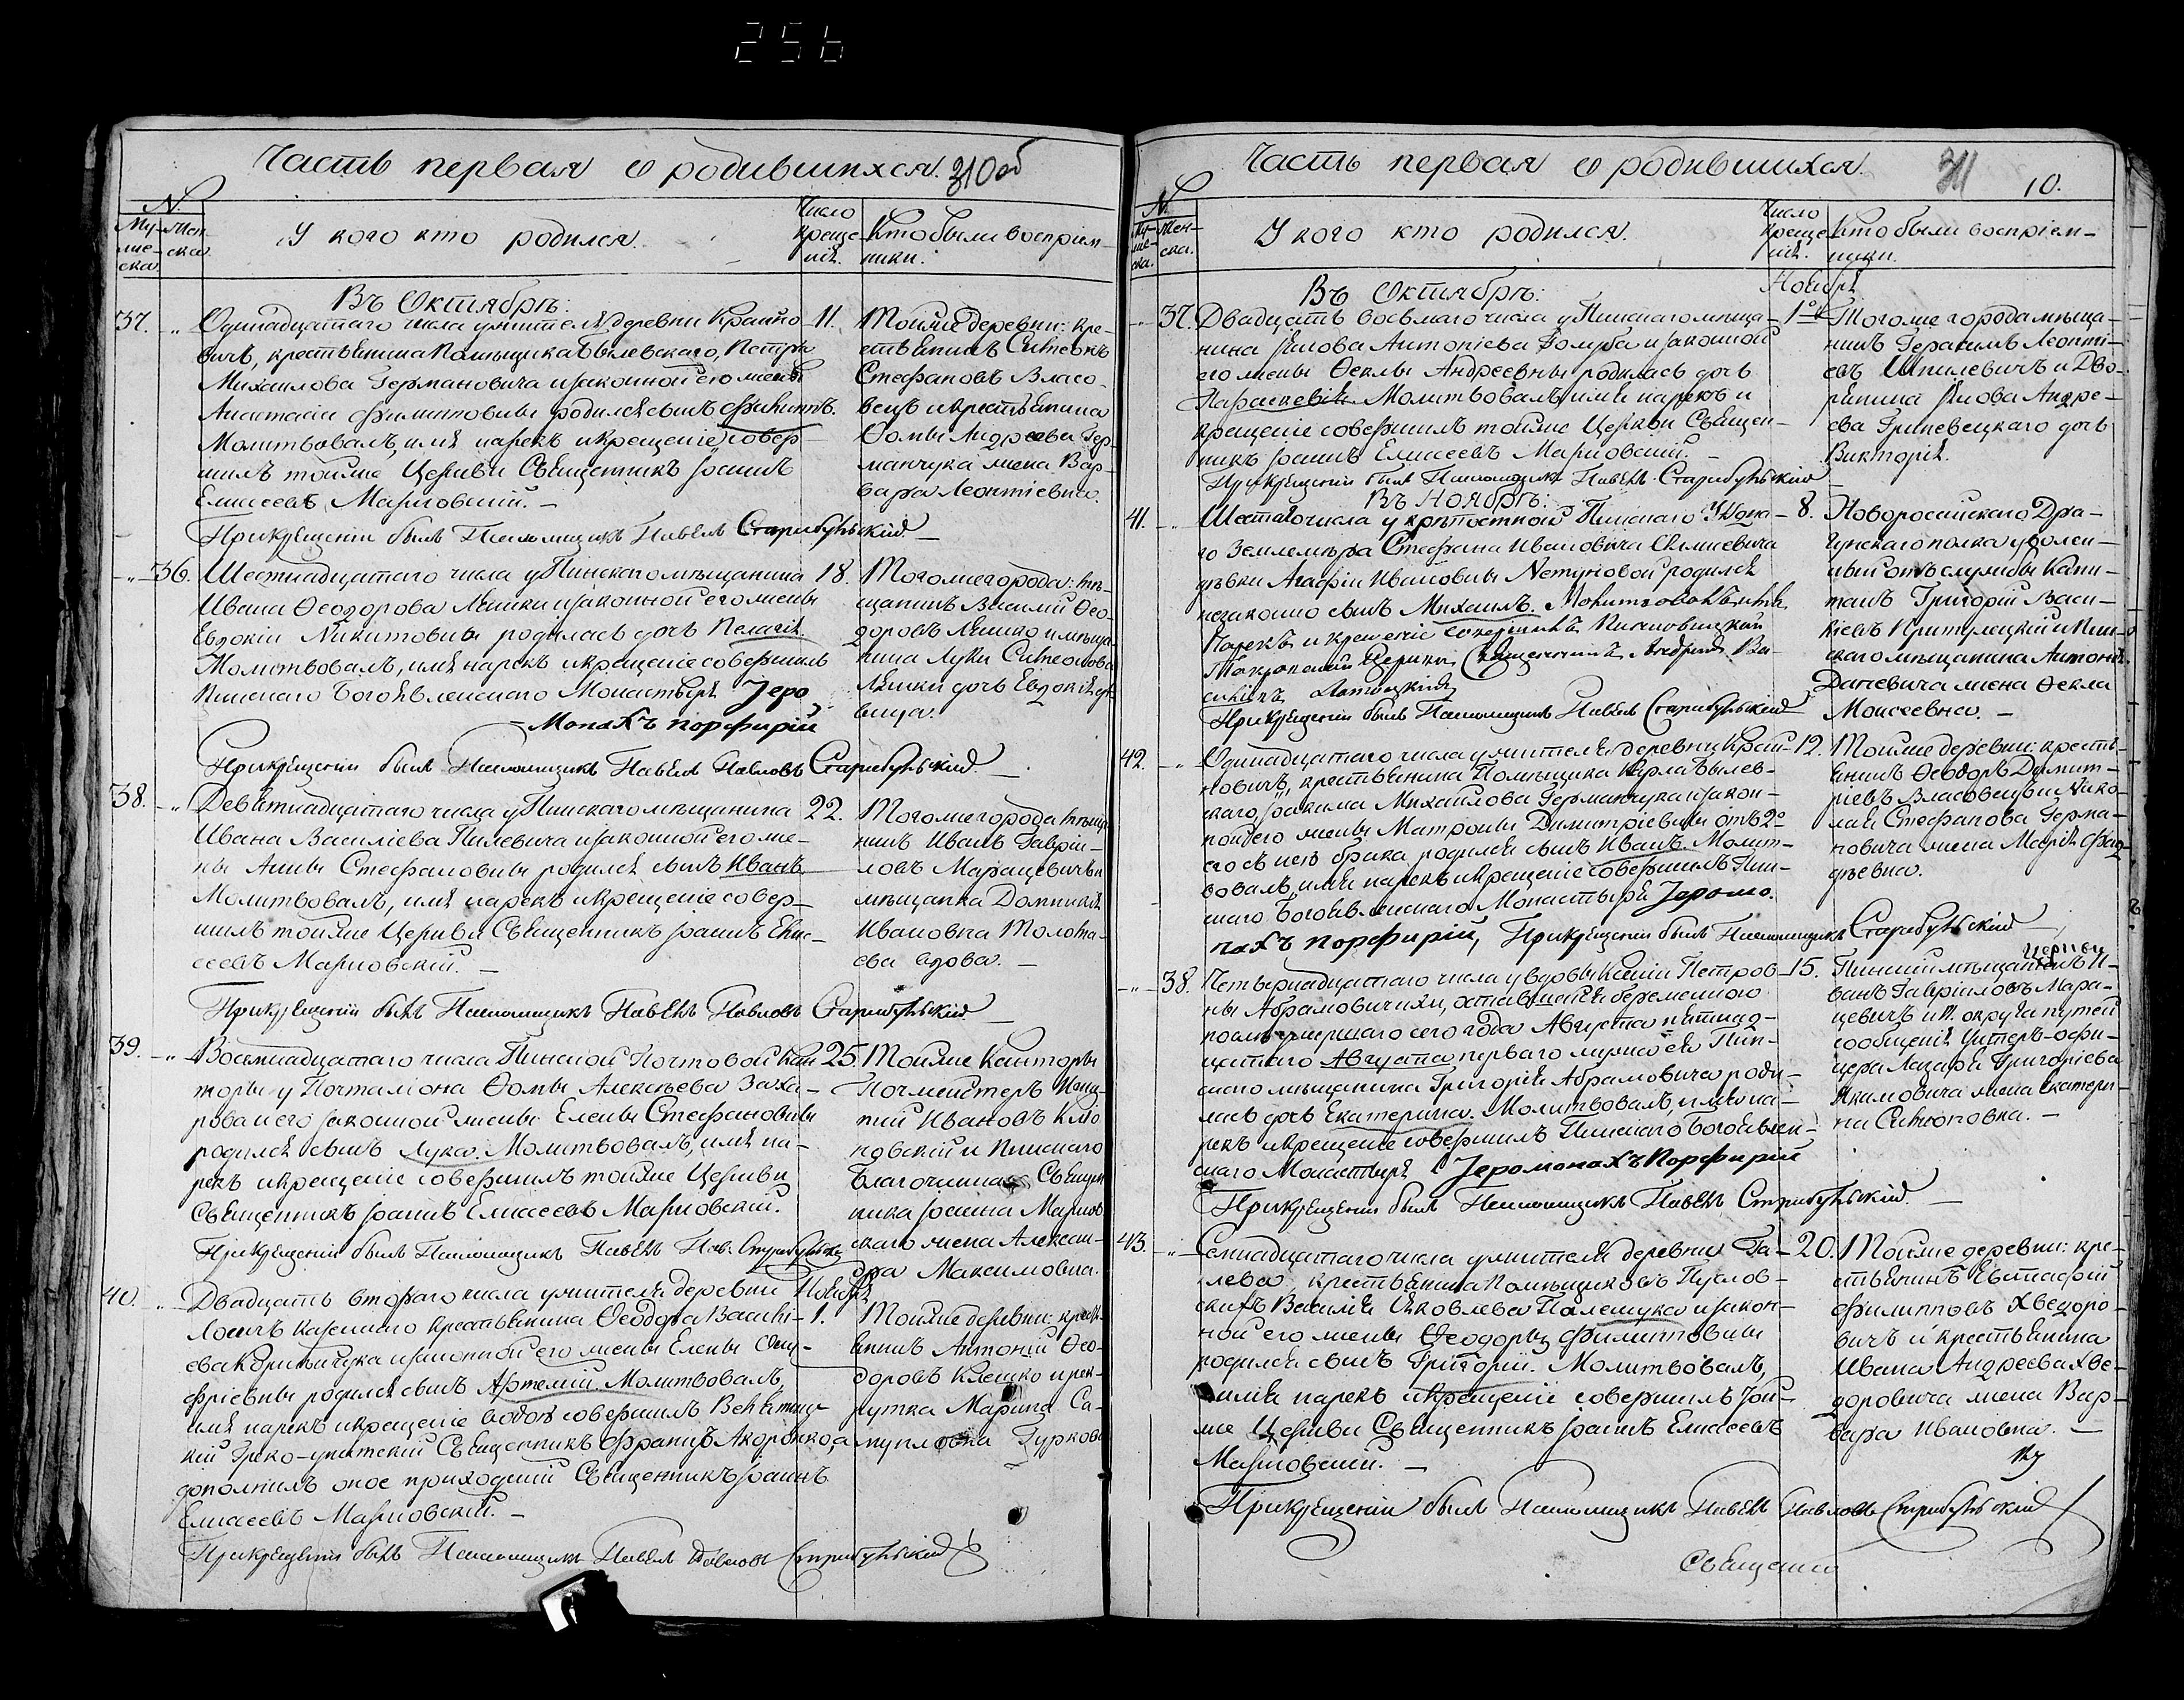 256
Часть первая о родившихся. 310 об
N.
Му-
же-
ска.
Жен-
ска.
У кого кто родился.
Число
креще-
нія.
Кто были воспріем-
ники.
Въ Октябрѣ:
37. „ Одинадцатаго числа у жителя деревни Крайно-
вичъ, крестьянина Помѣщика Бѣлевскаго, Петра
Михаилова Германовича и законной его жены
Анастасіи Филипповны родился сынъ
Молитвовалъ, имя нарекъ и крещеніе совер-
шилъ тойже Церкви Священникъ Іоаннъ
Елисеевъ Маріовскій. –
При крещеніи былъ Павелъ
11. Тойже деревни: кре-
стьянинъ Симеонъ
Стефановъ Власо-
вецъ и крестьянина
Ѳомы Андреева Гер-
манчука жена Вар-
вара Леонтіевна.
„ 36. Шестнадцатаго числа у Пинскаго мѣщанина
Ивана Ѳеодорова Ляшки и законной его жены
Евдокіи Никитовны родилась дочь Пелагія.
Молитвовалъ, имя нарекъ и крещеніе совершилъ
Пинскаго Богоявленскаго Монастыря Іеро
Монахъ Порфирій
При крещеніи былъ Павелъ Павловъ
18. Тогоже города: мѣ-
щанинъ Василій Ѳео-
доровъ Ляшко и мѣща-
нина Луки Симеонова
Ляшки дочь Евдокія дѣ-
вица.
38. „ Девятнадцатаго числа у Пинскаго мѣщанина
Ивана Василіева Пилевича и законной его же-
ны Анны Стефановны родился сынъ Иванъ
Молитвовалъ, имя нарекъ и крещеніе совер-
шилъ тойже Церкви Священникъ Іоаннъ Ели-
сеевъ Маріовскій. –
При крещеніи былъ Павелъ Павловъ
22. Тогоже города мѣща-
нинъ Иванъ Гавріи-
ловъ Марацевичъ и
мѣщанка Домникія
Ивановна
вдова. –
39. „ Восемнадцатаго числа Пинской Почтовой Кон-
торы у Почталіона Ѳомы Алексѣева Заха-
рова и его законной жены Елены Стефановны
родился сынъ Лука. Молитвовалъ, имя на-
рекъ и крещеніе совершилъ тойже Церкви
Священникъ Іоаннъ Елисеевъ Маріовскій.
При крещеніи былъ Павелъ
25. Тойже Конторы
Почмейстеръ
Ивановъ
и Пинскаго
Благочиннаго Священ-
ника Іоанна Маріов-
скаго жена Алексан-
дра Максимовна.
40. „ Двадцать втораго числа у жителя деревни
казеннаго крестьянина Ѳеодора Василі-
ева и законной его жены Елены Ону-
фріевны родился сынъ Артемій. Молитвовалъ,
имя нарекъ и крещеніе водою совершилъ
Греко-унитскій Священникъ Францъ а
дополнилъ оное приходскій Священникъ Іоаннъ
Елисеевъ Маріовскій. –
При крещеніи былъ Павелъ Павловъ
Ноября
1. Тойже деревни: кресть-
янинъ Антоній Ѳео-
доровъ Клешко и рек-
рутка Марина Са-
муиловна
Часть первая о родившихся.
311
10.
N.
Му-
же-
ска.
Жен-
ска.
У кого кто родился.
Число
креще-
нія.
Кто были воспріем-
ники.
Въ Октябрѣ:
Ноября
„ 37. Двадцать восьмаго числа у Пинскаго мѣща-
нина Антоніева и законной
его жены Ѳеклы Андреевны родилась дочь
Параскевія. Молитвовалъ, имя нарекъ и
крещеніе совершилъ тойже Церкви Священ-
никъ Іоаннъ Елисеевъ Маріовскій. –
При крещеніи былъ Павелъ
1го Тогоже города мѣща-
нинъ Герасимъ Леонті-
евъ Шпилевичъ и Дво-
рянина Якова Андре-
ева Гриневецкаго дочь
Викторія.
Въ Ноябрѣ:
41. „ Шестаго числа у крѣпостной Пинскаго Уѣздна-
го Землемѣра Стефана Ивановича
дѣвки Агафіи Ивановны родился
незаконно сынъ Михаилъ. Молитвовалъ имя
Нарекъ и крещеніе совершилъ
Церкви Священникъ Андрей Ва-
силіевъ
При крещеніи былъ Павелъ
8. Новоросійскаго Дра-
гунскаго полка уволен-
ный отъ службы Капи-
танъ Григорій Васи-
ліевъ Притулецкій и Пин-
скаго мѣщанина Антонія
Даневича жена Ѳекла
Моисеевна. –
42. „ Одинадцатаго числа у жителя деревни Край-
новичъ, крестьянина Помѣщика Карла Бѣлев-
скаго, Іоакима Михаилова Германчука и закон-
ной его жены Матроны Димитріевны отъ 2го
его съ нею брака родился сынъ Иванъ. Молит-
вовалъ, имя нарекъ и крещеніе совершилъ Пин-
скаго Богоявленскаго Монастыря Іеромо-
нахъ Порфирій, При крещеніи былъ
12. Тойже деревни: кресть-
янинъ Ѳеодоръ Димит-
ріевъ Власовецъ и Нико-
лая Стефанова Герма-
новича жена Марія Фад-
дѣевна.
„ 38. Четырнадцатаго числа у вдовы Ксеніи Петров-
ны Абрамовичихи, оставшейся беременною
послѣ умершаго сего года Августа пятнад-
цатаго Августа перваго мужа ея Пин-
скаго мѣщанина Григорія Абрамовича роди-
лась дочь Екатерина. Молитвовалъ, имя на-
рекъ и крещеніе совершилъ Пинскаго Богоявлен-
скаго Монастыря Іеромонахъ Порфирій
При крещеніи былъ Павелъ
15. Пинскій мѣщанинъ И-
ванъ Гавріиловъ Мара-
цевичъ и округа путей
сообщенія Унтеръ-офи-
цера Лазаря Григоріева
Якимовича жена Екатери-
на Симоновна. –
43. „ Семнадцатаго числа у жителя деревни Га-
лева, крестьянина Помѣщиковъ Пуслов-
скихъ Василія Яковлева Палешука и закон-
ной его жены Ѳеодоры Филипповны
родился сынъ Григорій. Молитвовалъ,
имя нарекъ и крещеніе совершилъ той-
же Церкви Священникъ Іоаннъ Елисеевъ
Маріовскій. –
При крещеніи былъ Павелъ Павловъ
20. Тойже деревни: кре-
стьянинъ Евстафій
Филипповъ Хведоро-
вичъ и крестьянина
Ивана Андреева Хве-
доровича жена Вар-
вара Ивановна. –
Священно